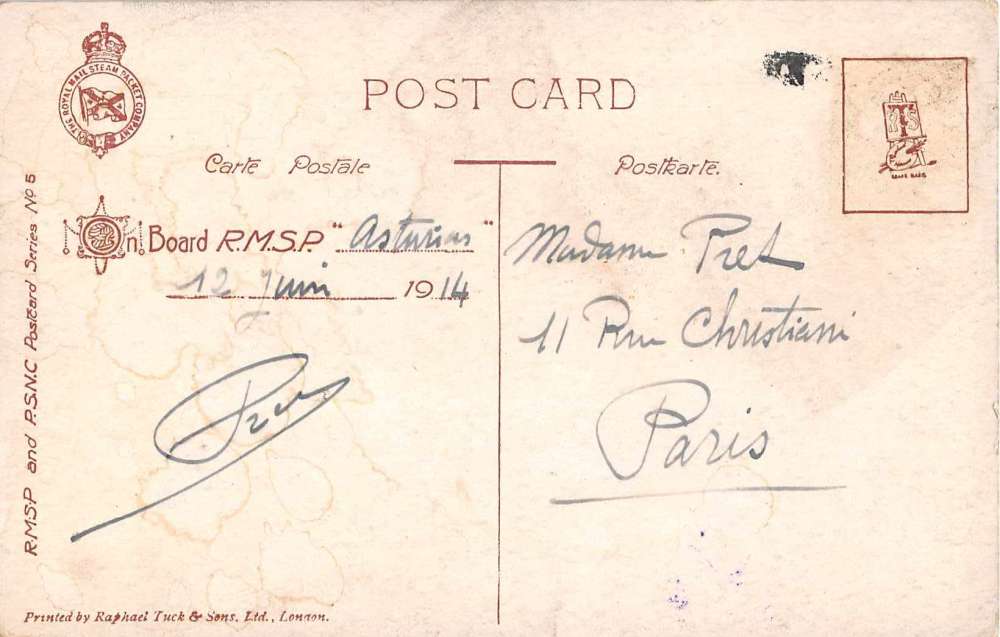 THE ROYAL MAIL STEAM PACKET COMPANY
POST CARD
Carte Postale
Postkarte.
RMSP and P.S.N.C Postcard Series No 5
On Board R.M.S.P. "Asturias"
12 Juin 1914
Madame Pret
11 Rue Christiani
Paris
Printed by Raphael Tuck & Sons, Ltd., London.